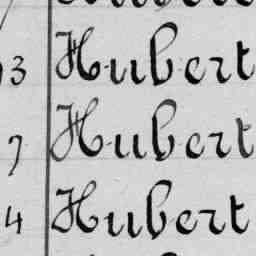 3 Hubert
7 Hubert
4 Hubert